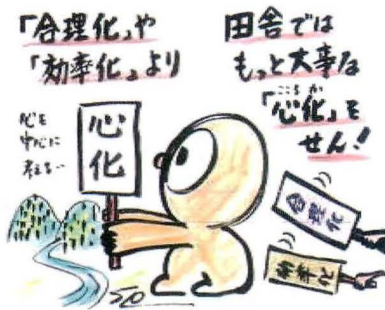 「合理化」や
「効率化」より
田舎では
もっと大事な
こころか
「心化」を
せん!
心を
中心に
考える…
心化
合理化
効率化